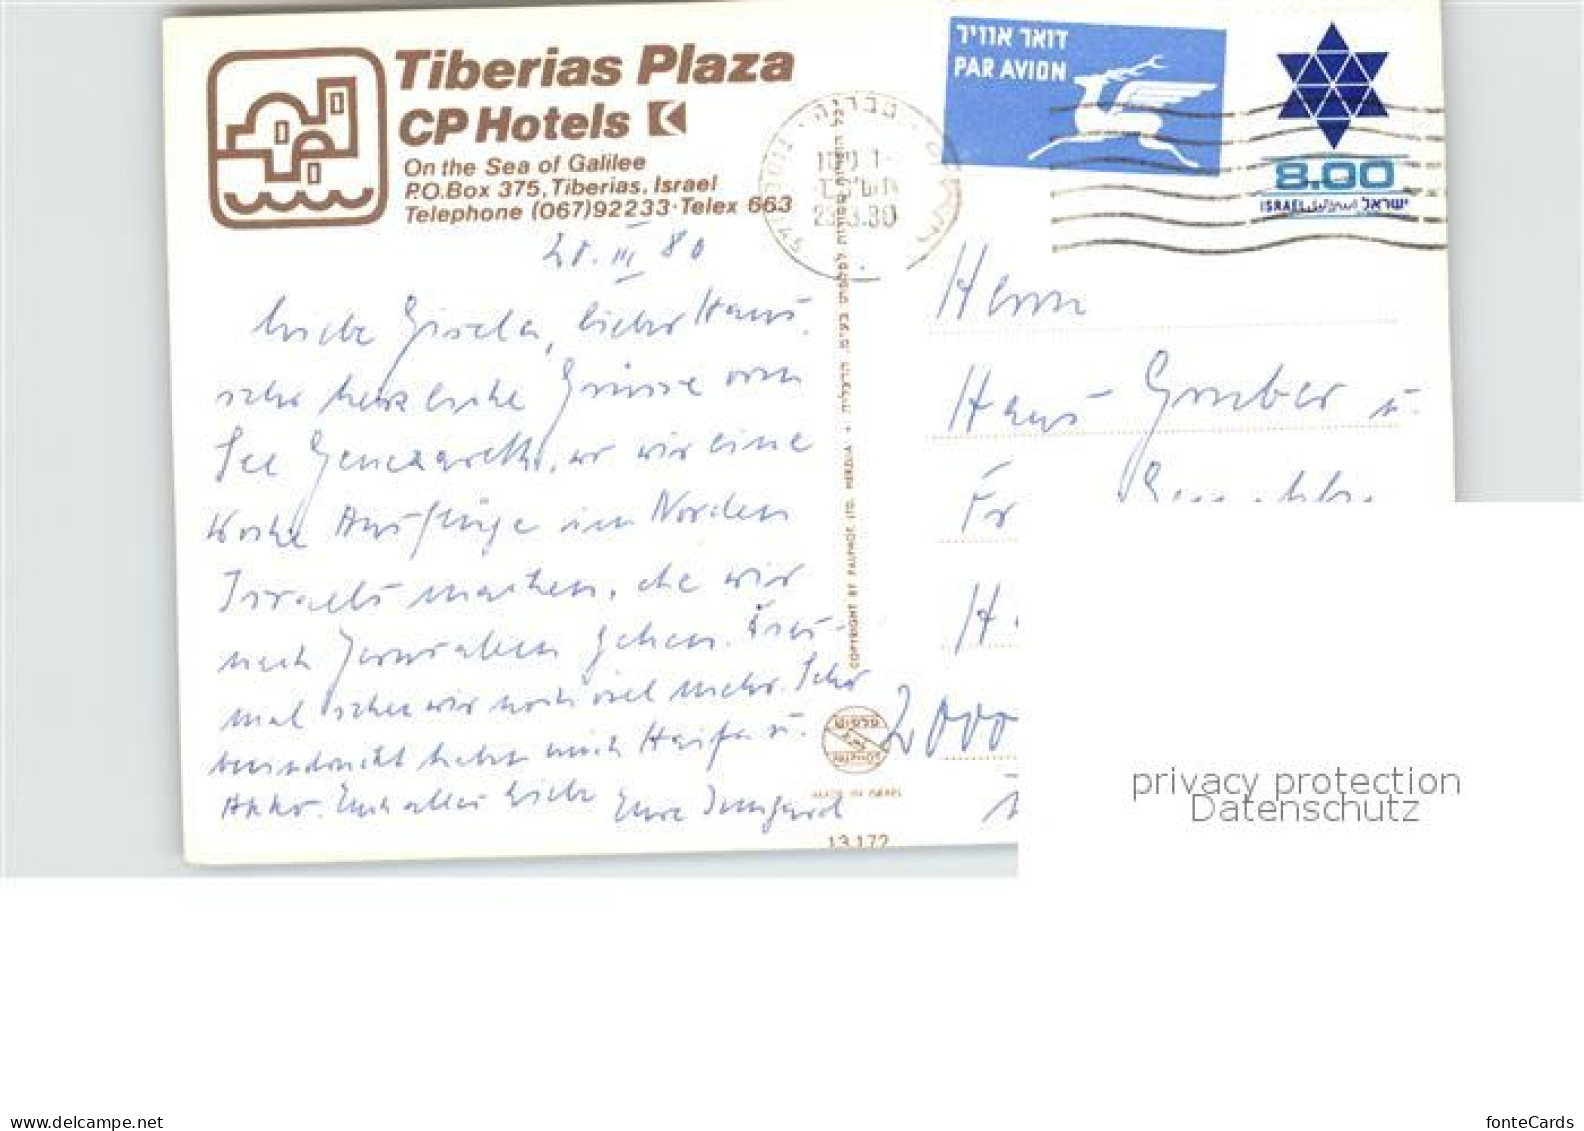 Tiberias Plaza
CP Hotels
On the Sea of Galilee
P.O.Box 375, Tiberias, Israel
Telephone (067)92233·Telex 663
28. III 80
Liebe Gisela, lieber Hans,
sehr herzliche Grüsse vom
See Genezareth, wo wir eine
Woche Ausflüge im Norden
Israels machen, ehe wir
nach Jerusalem gehen.
mal sehen wir noch viel mehr. Sehr
beeindruckt haben mich Haifa u.
Akko. Euch alles Liebe Eure Irmgard
דואר אוויר
PAR AVION
טבריה
8.00
ISRAEL اسرائيل ישראל
COPYRIGHT BY PALPHOT LTD. HERZLIA + כל הזכויות שמורות לפלפוט בע"מ, הרצליה
פלפוט
MADE IN ISRAEL
13.172
Herrn
Hans Gruber u.
Fr
H
2000
privacy protection
Datenschutz
www.delcampe.net
fonteCards